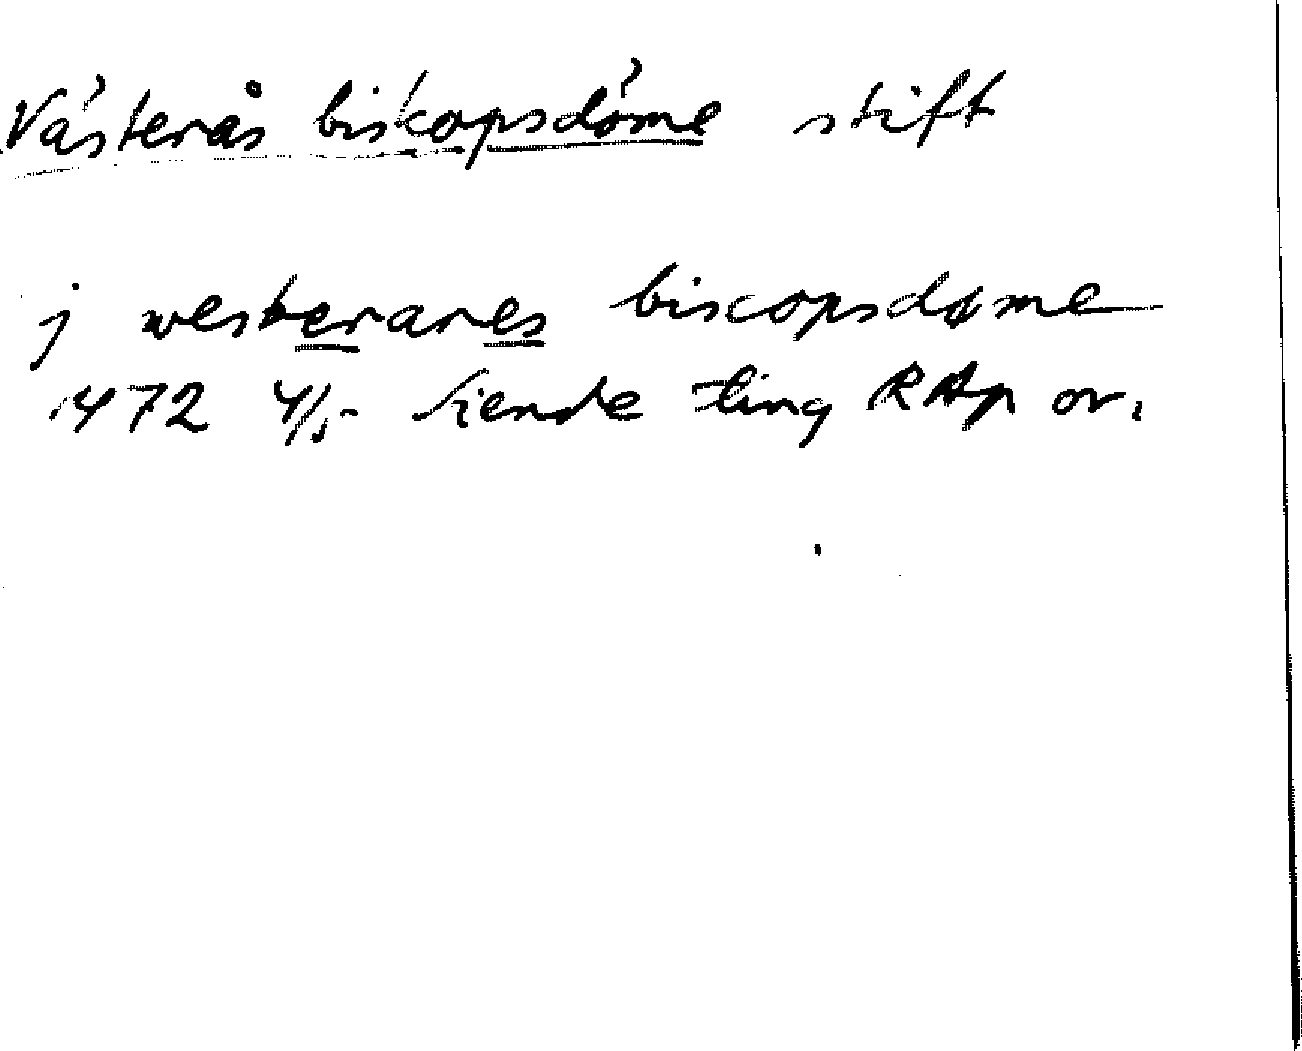 Västerås biskopsdöme stift
j westerares biscopsdøme
1472 4/5 Siende ting RAp or.